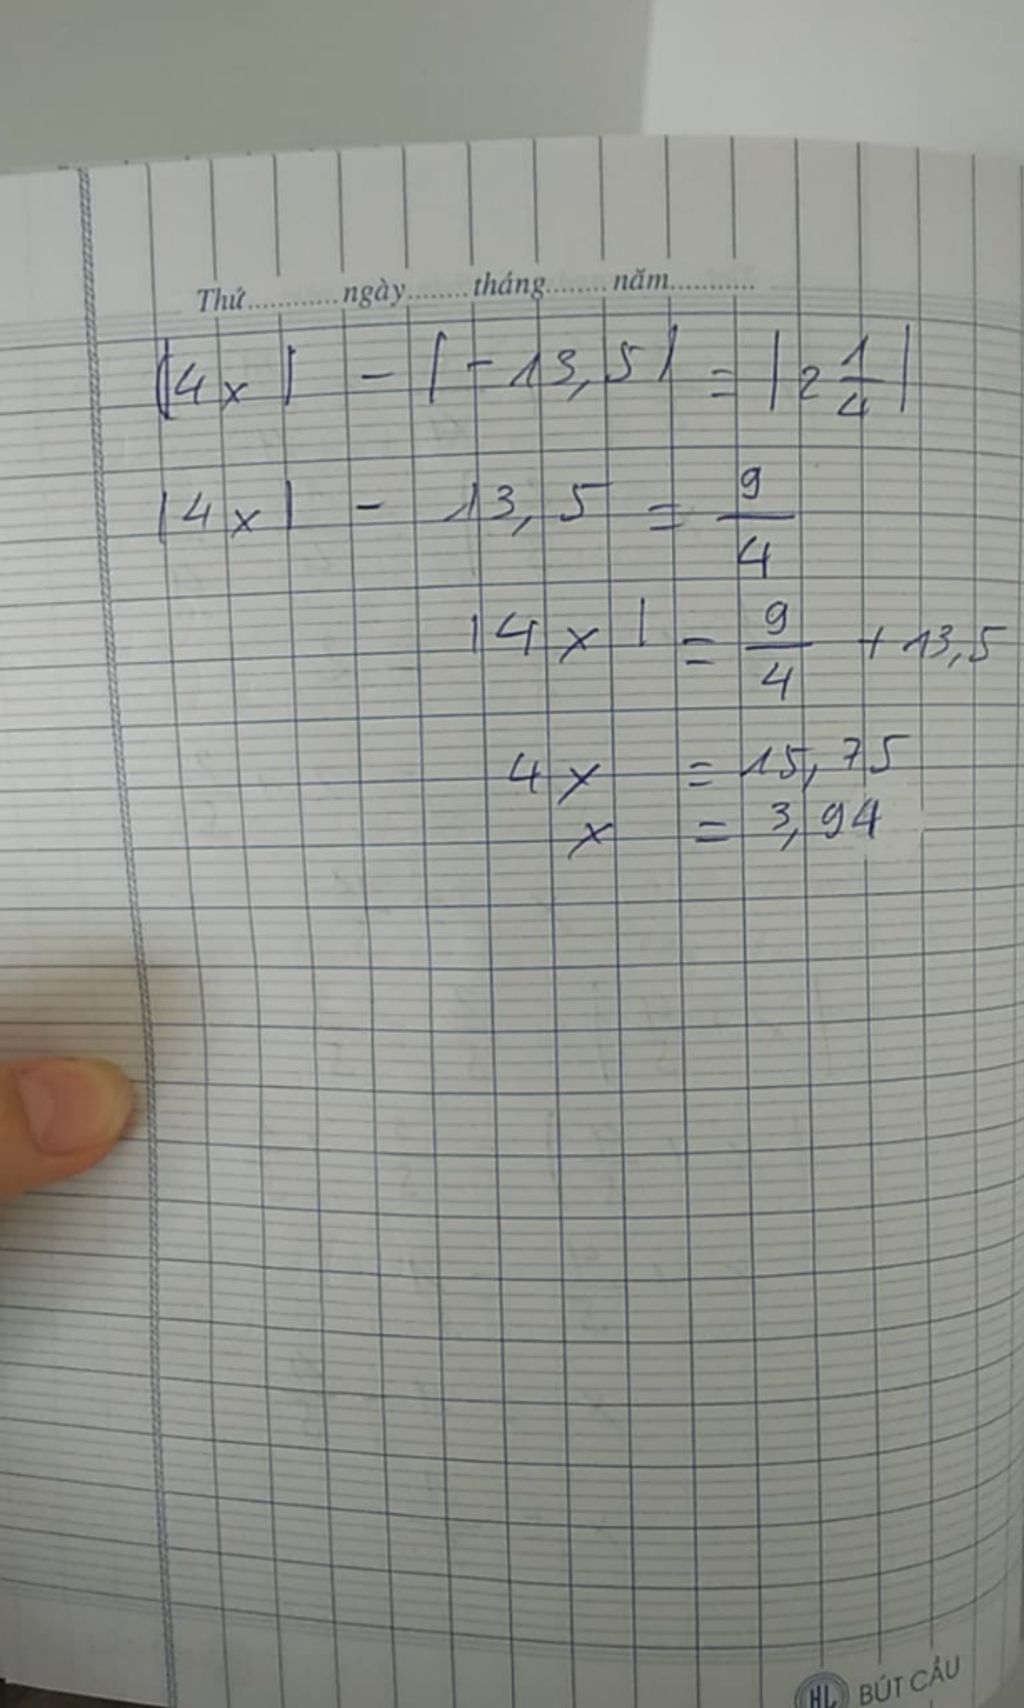 Thứ............ngày........tháng........năm...........
|4x| - |-13,5| = |2 1/4|
|4x| - 13,5 = 9/4
|4x| = 9/4 + 13,5
4x = 15,75
x = 3,94
HL BÚT CẨU